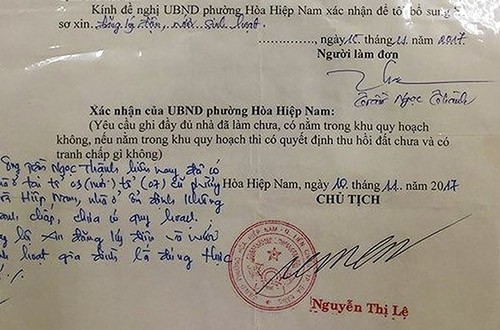 Kính đề nghị UBND phường Hòa Hiệp Nam xác nhận để tôi bổ sung h
sơ xin đăng ký điện, nước sinh hoạt
, ngày 10 tháng 11 năm 2017
Người làm đơn
Trần Ngọc Thành
Xác nhận của UBND phường Hòa Hiệp Nam:
(Yêu cầu ghi đầy đủ nhà đã làm chưa, có nằm trong khu quy hoạch
không, nếu nằm trong khu quy hoạch thì có quyết định thu hồi đất chưa và có
tranh chấp gì không)
Ông Trần Ngọc Thành hiện nay đã có
ở tại tổ 03 (mới) tổ (07) cũ phường
Hiệp Nam, nhà ở ổn định không
tranh chấp, chưa có quy hoạch
xin đăng ký điện và nước
hoạt gia đình là đúng thực
Hòa Hiệp Nam, ngày 10 tháng 11 năm 2017
CHỦ TỊCH
Nguyễn Thị Lệ